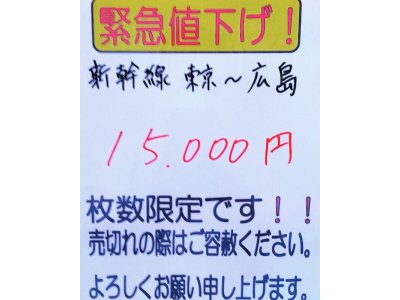 緊急値下げ！
新幹線 東京～広島
15.000円
枚数限定です！！
売切れの際はご容赦ください。
よろしくお願い申し上げます。